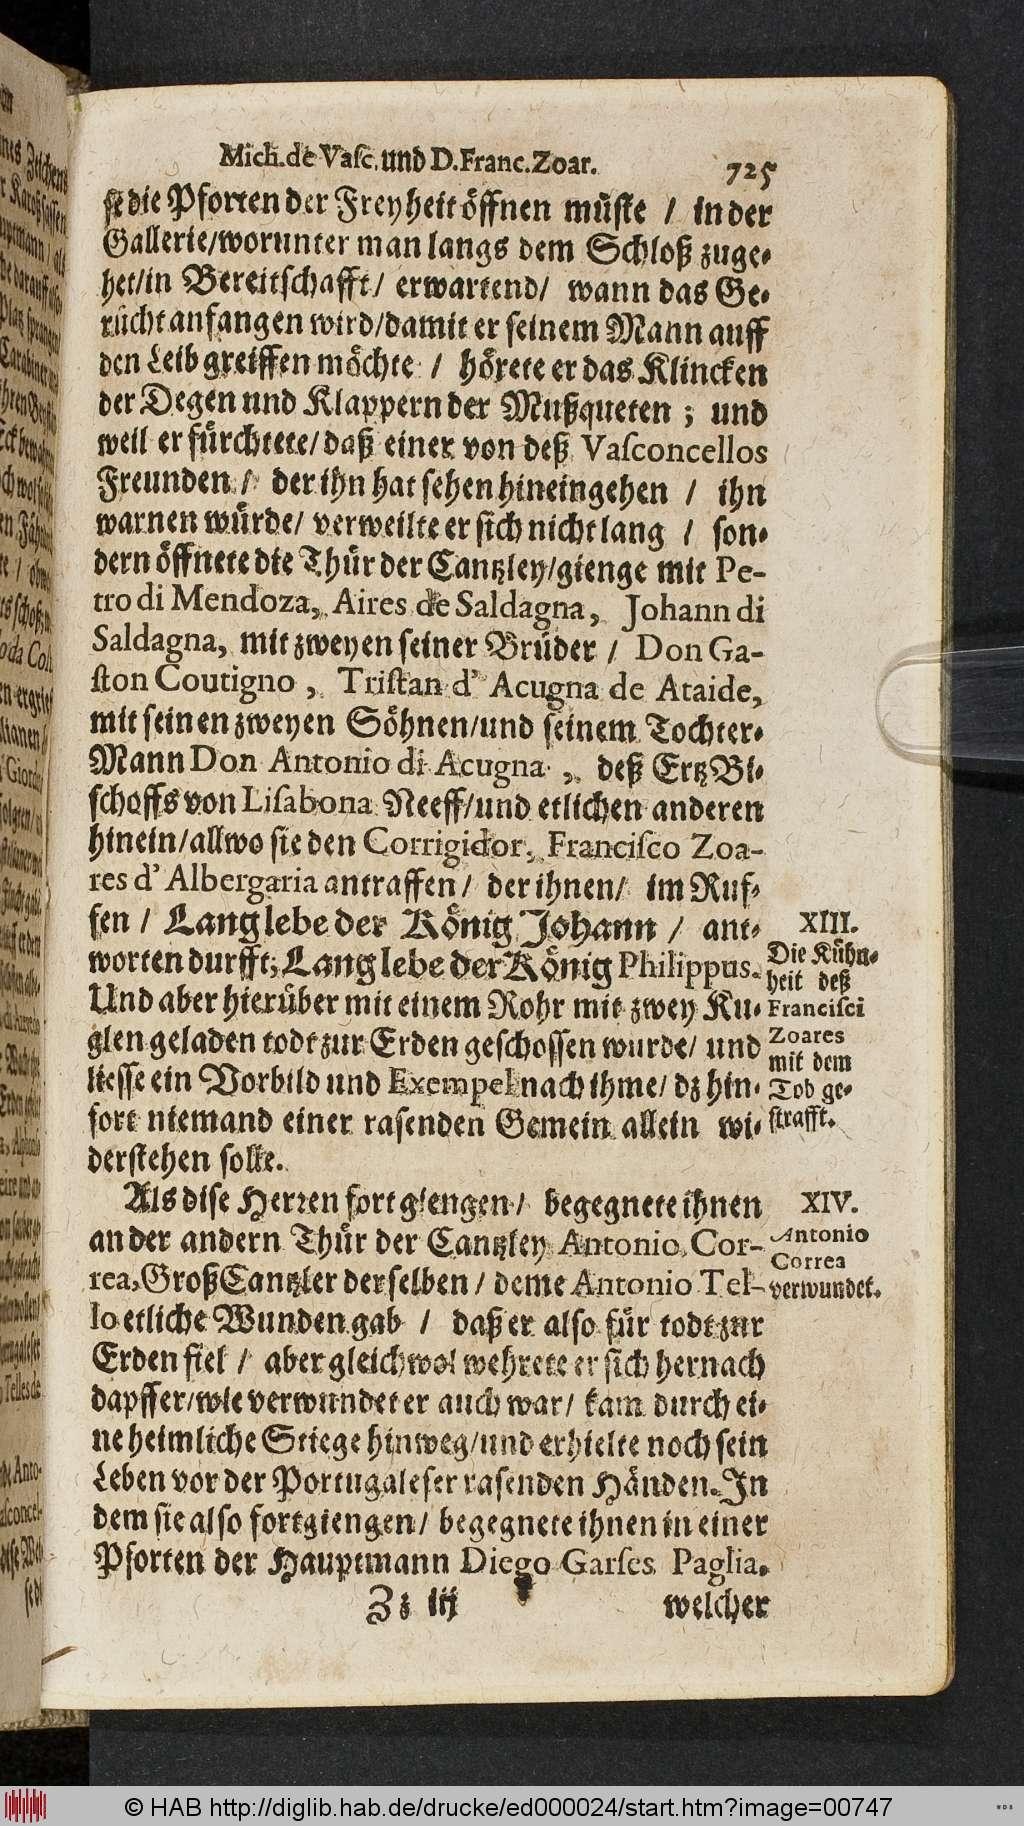 Mich. de Vaſc. und D. Franc. Zoar. 725
ſe die Pforten der Freyheit öffnen müſte / in der
Gallerie/worunter man langs dem Schloß zuge-
het/in Bereitſchafft/ erwartend/ wann das Ge-
rücht anfangen wird/damit er ſeinem Mann auff
den Leib greiffen möchte / hörete er das Klincken
der Degen und Klappern der Mußqueten ; und
weil er fürchtete/daß einer von deß Vaſconcellos
Freunden / der ihn hat ſehen hineingehen / ihn
warnen würde/ verweilte er ſich nicht lang / ſon-
dern öffnete die Thür der Cantzley/gienge mit Pe-
tro di Mendoza, Aires de Saldagna, Johann di
Saldagna, mit zweyen ſeiner Brüder / Don Ga-
ſton Coutigno , Triſtan d' Acugna de Ataide,
mit ſeinen zweyen Söhnen/und ſeinem Tochter-
Mann Don Antonio di Acugna , deß Ertz Bi-
ſchoffs von Liſabona Neeff/und etlichen anderen
hinein/allwo ſie den Corrigidor, Franciſco Zoa-
res d' Albergaria antraffen/ der ihnen/ im Ruf-
fen / Lang lebe der König Johann / ant-
worten durfft; Lang lebe der König Philippus.
Und aber hierüber mit einem Rohr mit zwey Ku-
glen geladen todt zur Erden geſchoſſen wurde/ und
lieſſe ein Vorbild und Exempel nach ihme/ dz hin-
fort niemand einer raſenden Gemein allein wi-
derſtehen ſolle.
XIII.
Die Kühn-
heit deß
Franciſci
Zoares
mit dem
Tod ge-
ſtrafft.
Als diſe Herren fort giengen/ begegnete ihnen
an der andern Thür der Cantzley Antonio Cor-
rea, Groß Cantzler derſelben / deme Antonio Tel-
lo etliche Wunden gab / daß er alſo für todt zur
Erden fiel / aber gleichwol wehrete er ſich hernach
dapffer/wie verwundet er auch war/ kam durch ei-
ne heimliche Stiege hinweg/und erhielte noch ſein
Leben vor der Portugaleſer raſenden Händen. In
dem ſie alſo fortgiengen/ begegnete ihnen in einer
Pforten der Hauptmann Diego Garſes Paglia,
XIV.
Antonio
Correa
verwundet.
Zz iij welcher
© HAB http://diglib.hab.de/drucke/ed000024/start.htm?image=00747